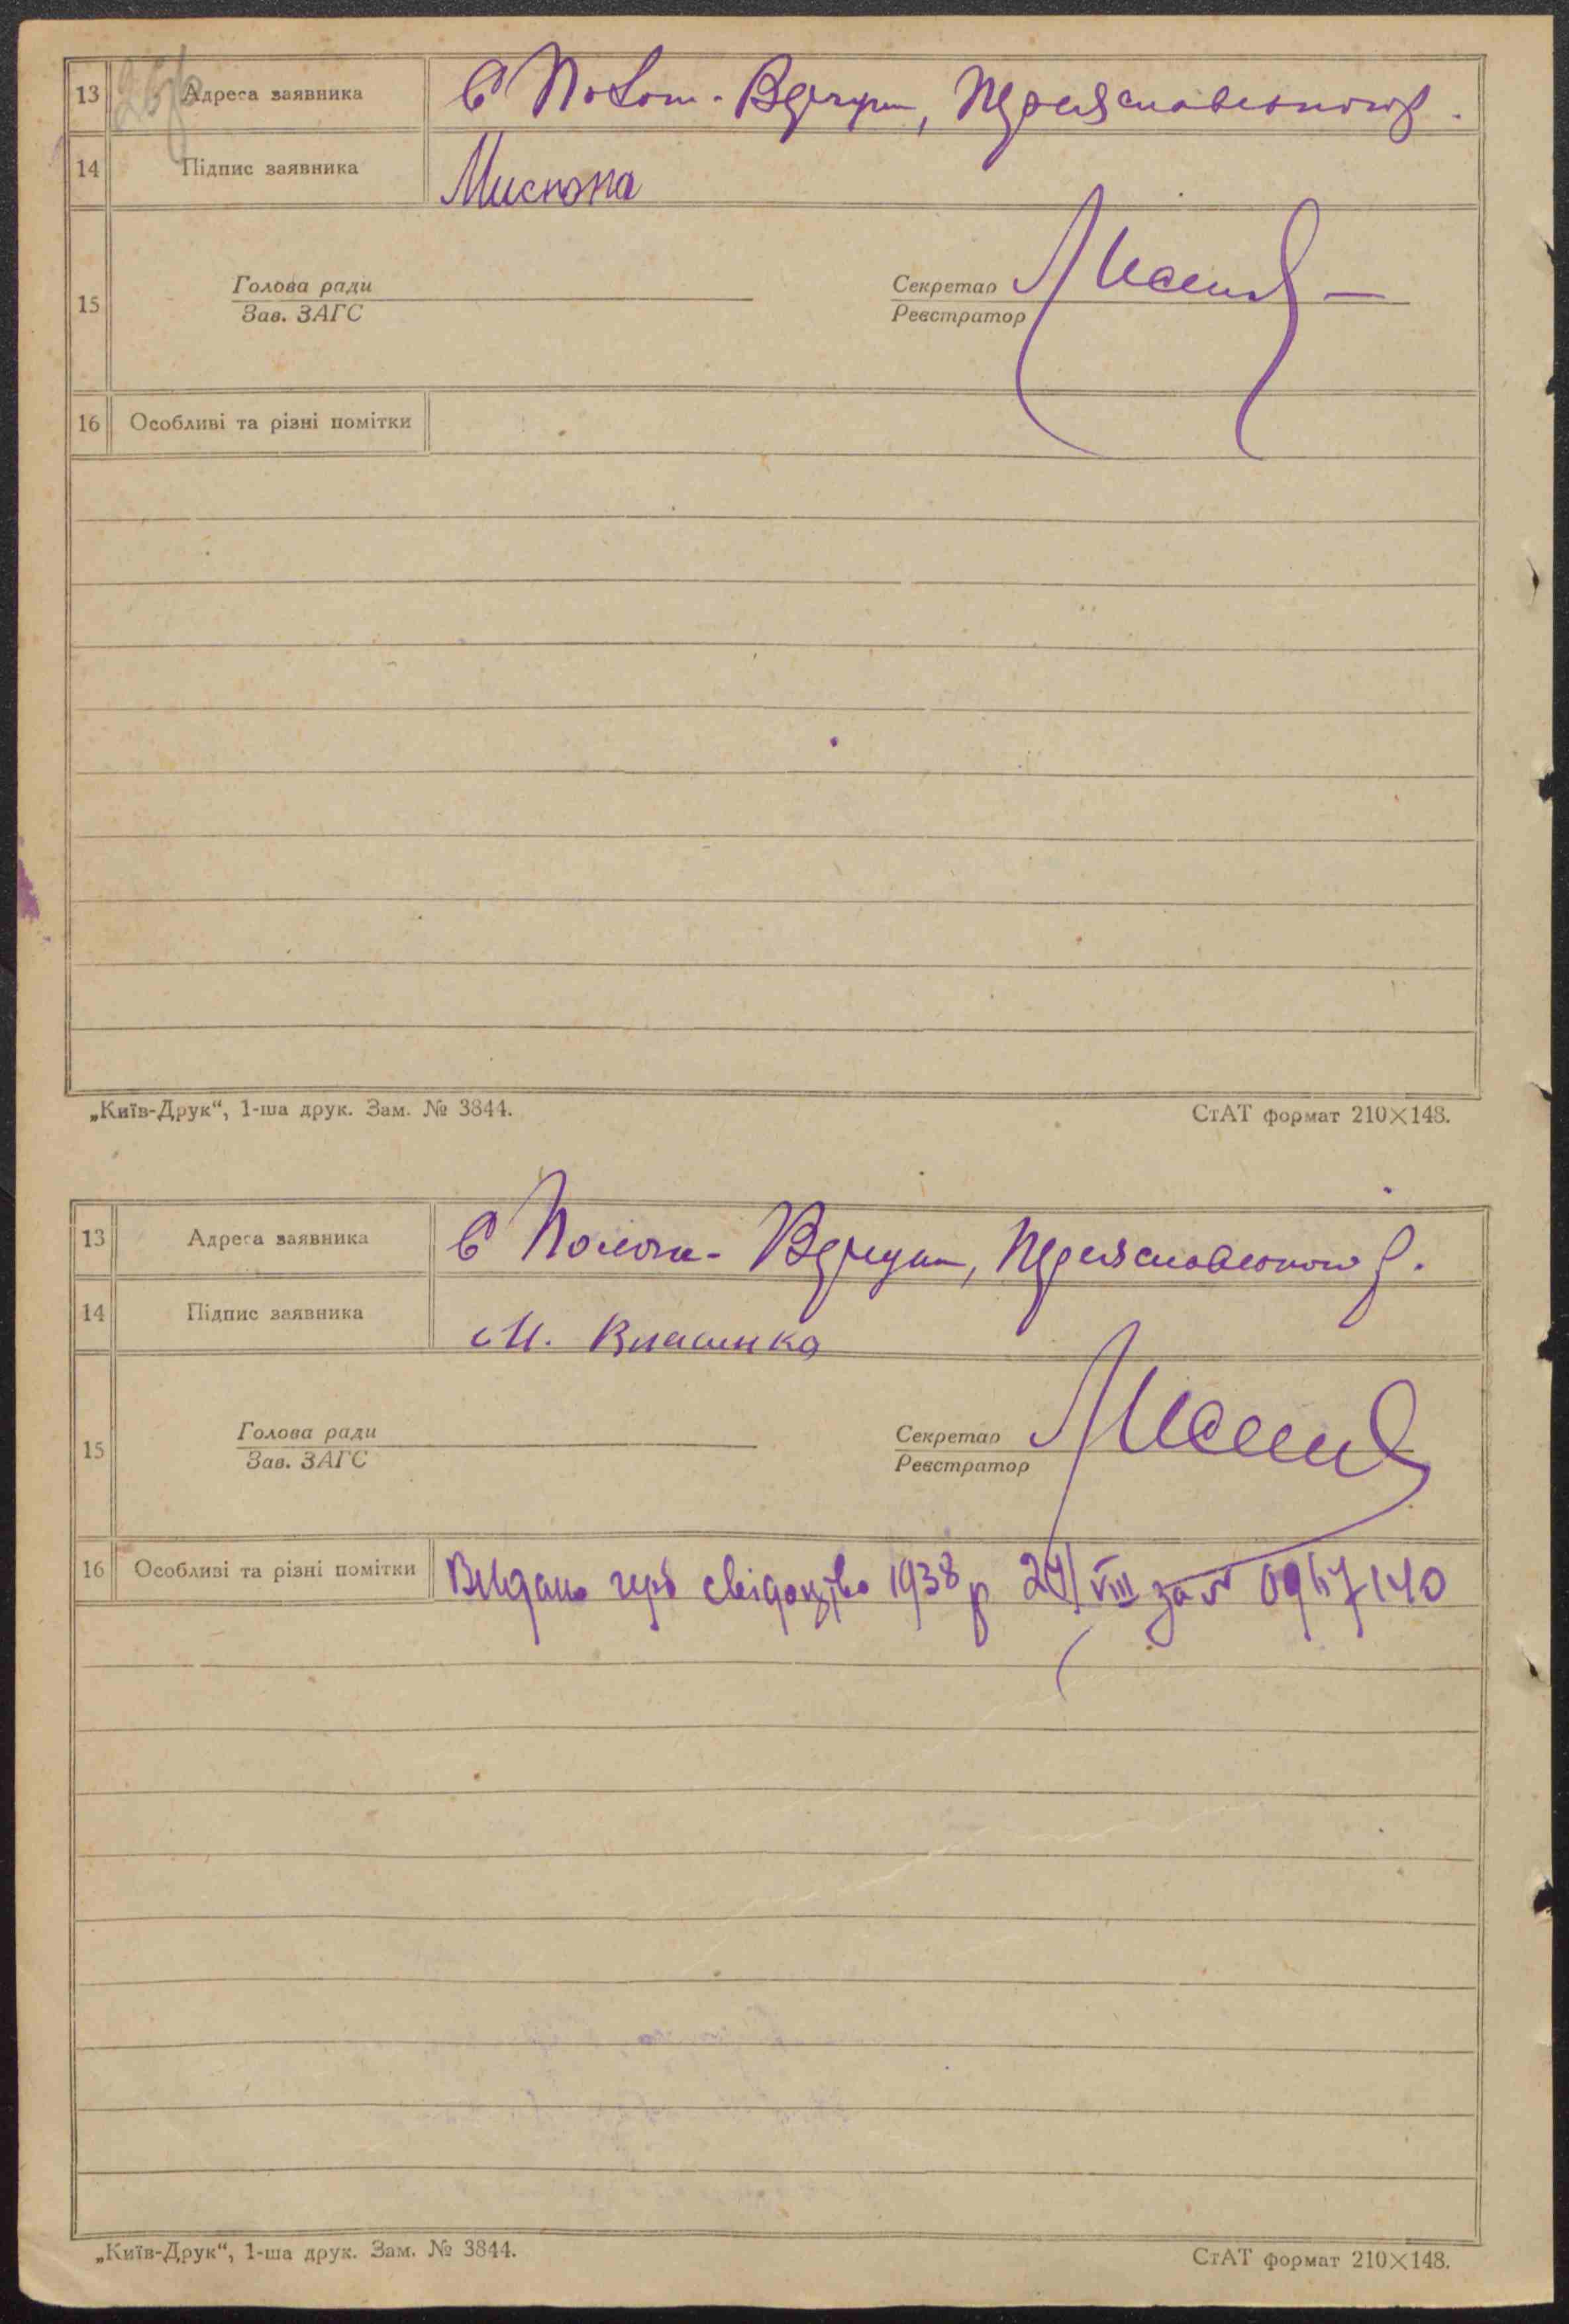 13 Адреса заявника С , Переяславського р.
14 Підпис заявника
15 Голова ради Секретар
Зав. ЗАГС Реєстратор
16 Особливі та різні помітки
„Київ-Друк“, 1-ша друк. Зам. № 3844. СтАТ формат 210×148.
13 Адреса заявника С , Переяславського р.
14 Підпис заявника М. Власенко
15 Голова ради Секретар
Зав. ЗАГС Реєстратор
16 Особливі та різні помітки Видано свідоцтво 1938 р VIII за №
„Київ-Друк“, 1-ша друк. Зам. № 3844. СтАТ формат 210×148.